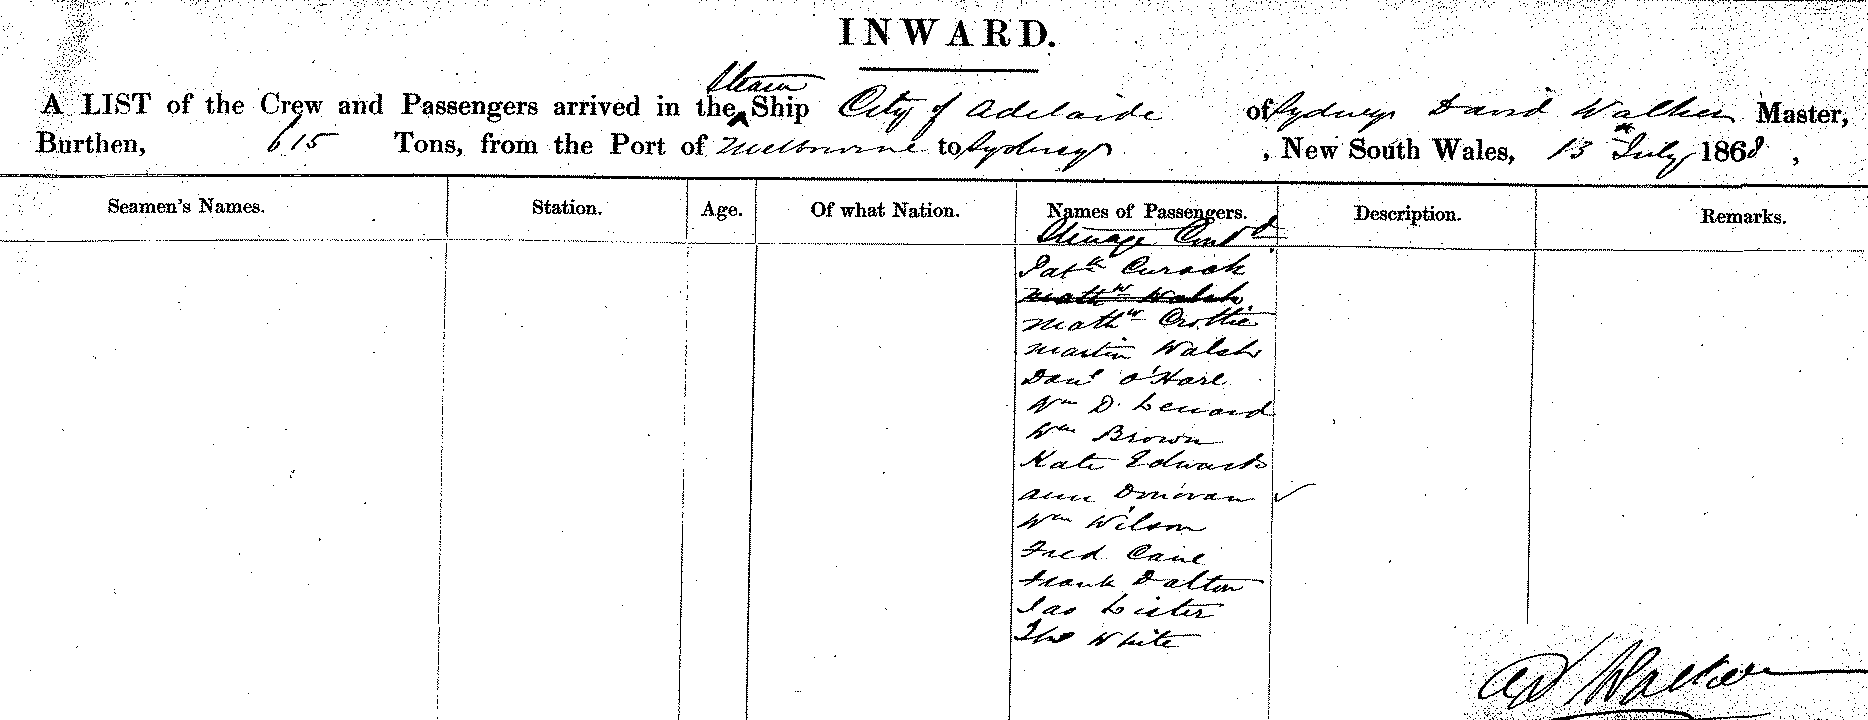 INWARD.
A LIST of the Crew and Passengers arrived in the Steam Ship City of Adelaide of Sydney David Walker Master,
Burthen, 615 Tons, from the Port of Melbourne to Sydney, New South Wales, 13 July 1868,
Seamen's Names. Station. Age. Of what Nation. Names of Passengers. Description. Remarks.
Steerage Contd
Patk Curack
Mathw Walsh
Mathw Crottie
Martin Walsh
Danl O'Hare
Wm D. Lenard
Wm Brown
Kate Edwards
Ann Donovan ✓
Wm Wilson
Fred Cane
Frank Dalton
Jas Lister
Tho White
Walker